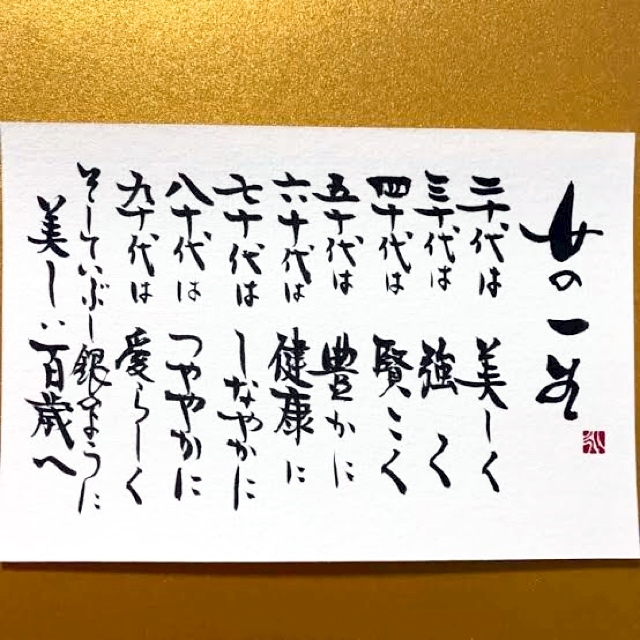 女の一生
二十代は 美しく
三十代は 強く
四十代は 賢こく
五十代は 豊かに
六十代は 健康に
七十代は しなやかに
八十代は つややかに
九十代は 愛らしく
そしていぶし銀のように
美しい百歳へ